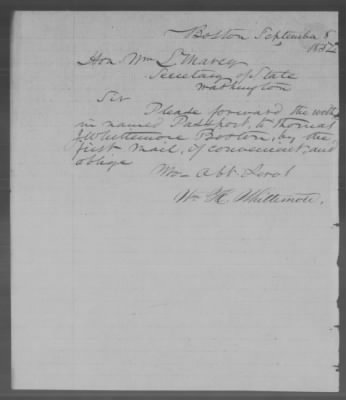 Boston September 8
Hon Wm L Marcy
Secretary of State
Washington
Sir
Please forward the with
in named Passport, to Thomas
J Whittemore Boston, by the
first mail, if convenient, and
oblige
Wm H. Whittemore.